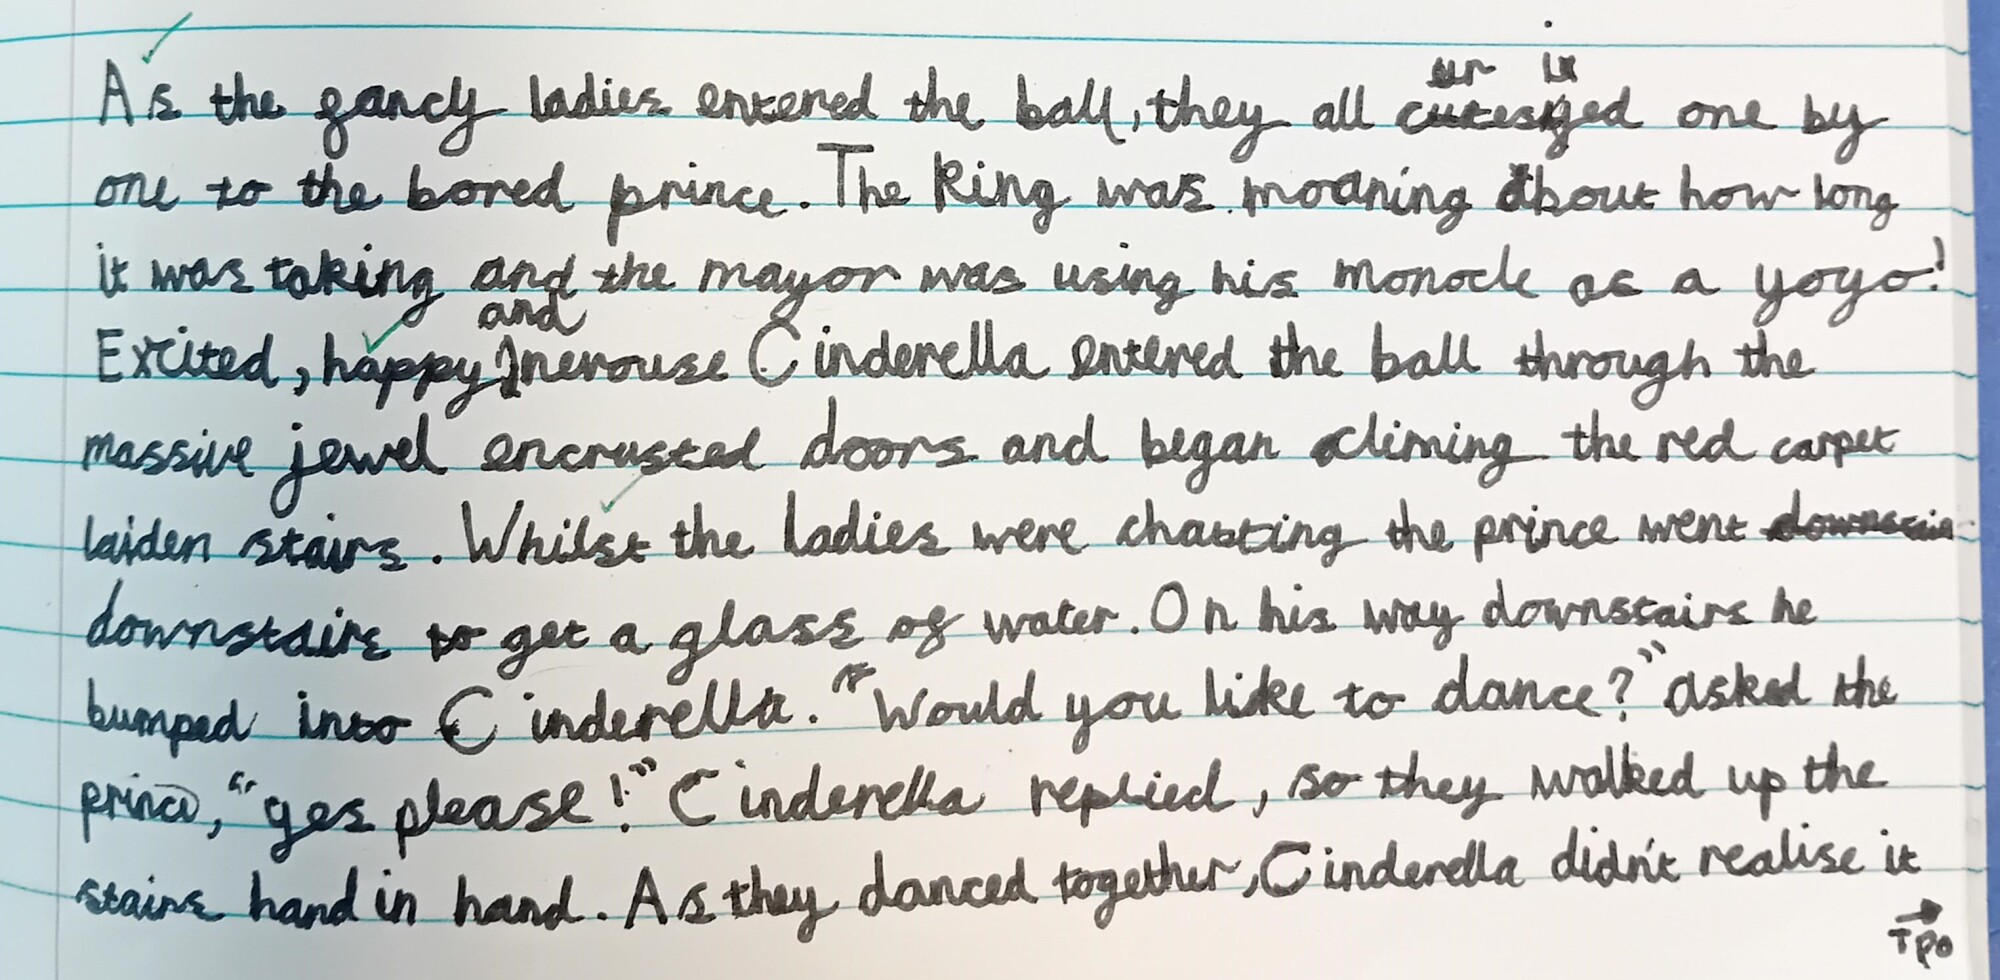 As the fancy ladies entered the ball, they all one by
one to the bored prince. The King was moaning about how long
it was taking and the mayor was using his monocle as a yoyo!
Excited, happy and nerouse Cinderella entered the ball through the
massive jewel encrusted doors and began climing the red carpet
laiden stairs. Whilst the ladies were chatting the prince went
downstairs to get a glass of water. On his way downstairs he
bumped into Cinderella. "Would you like to dance?" asked the
prince, "yes please!" Cinderella replied, so they walked up the
stairs hand in hand. As they danced together, Cinderella didn't realise it
TPO